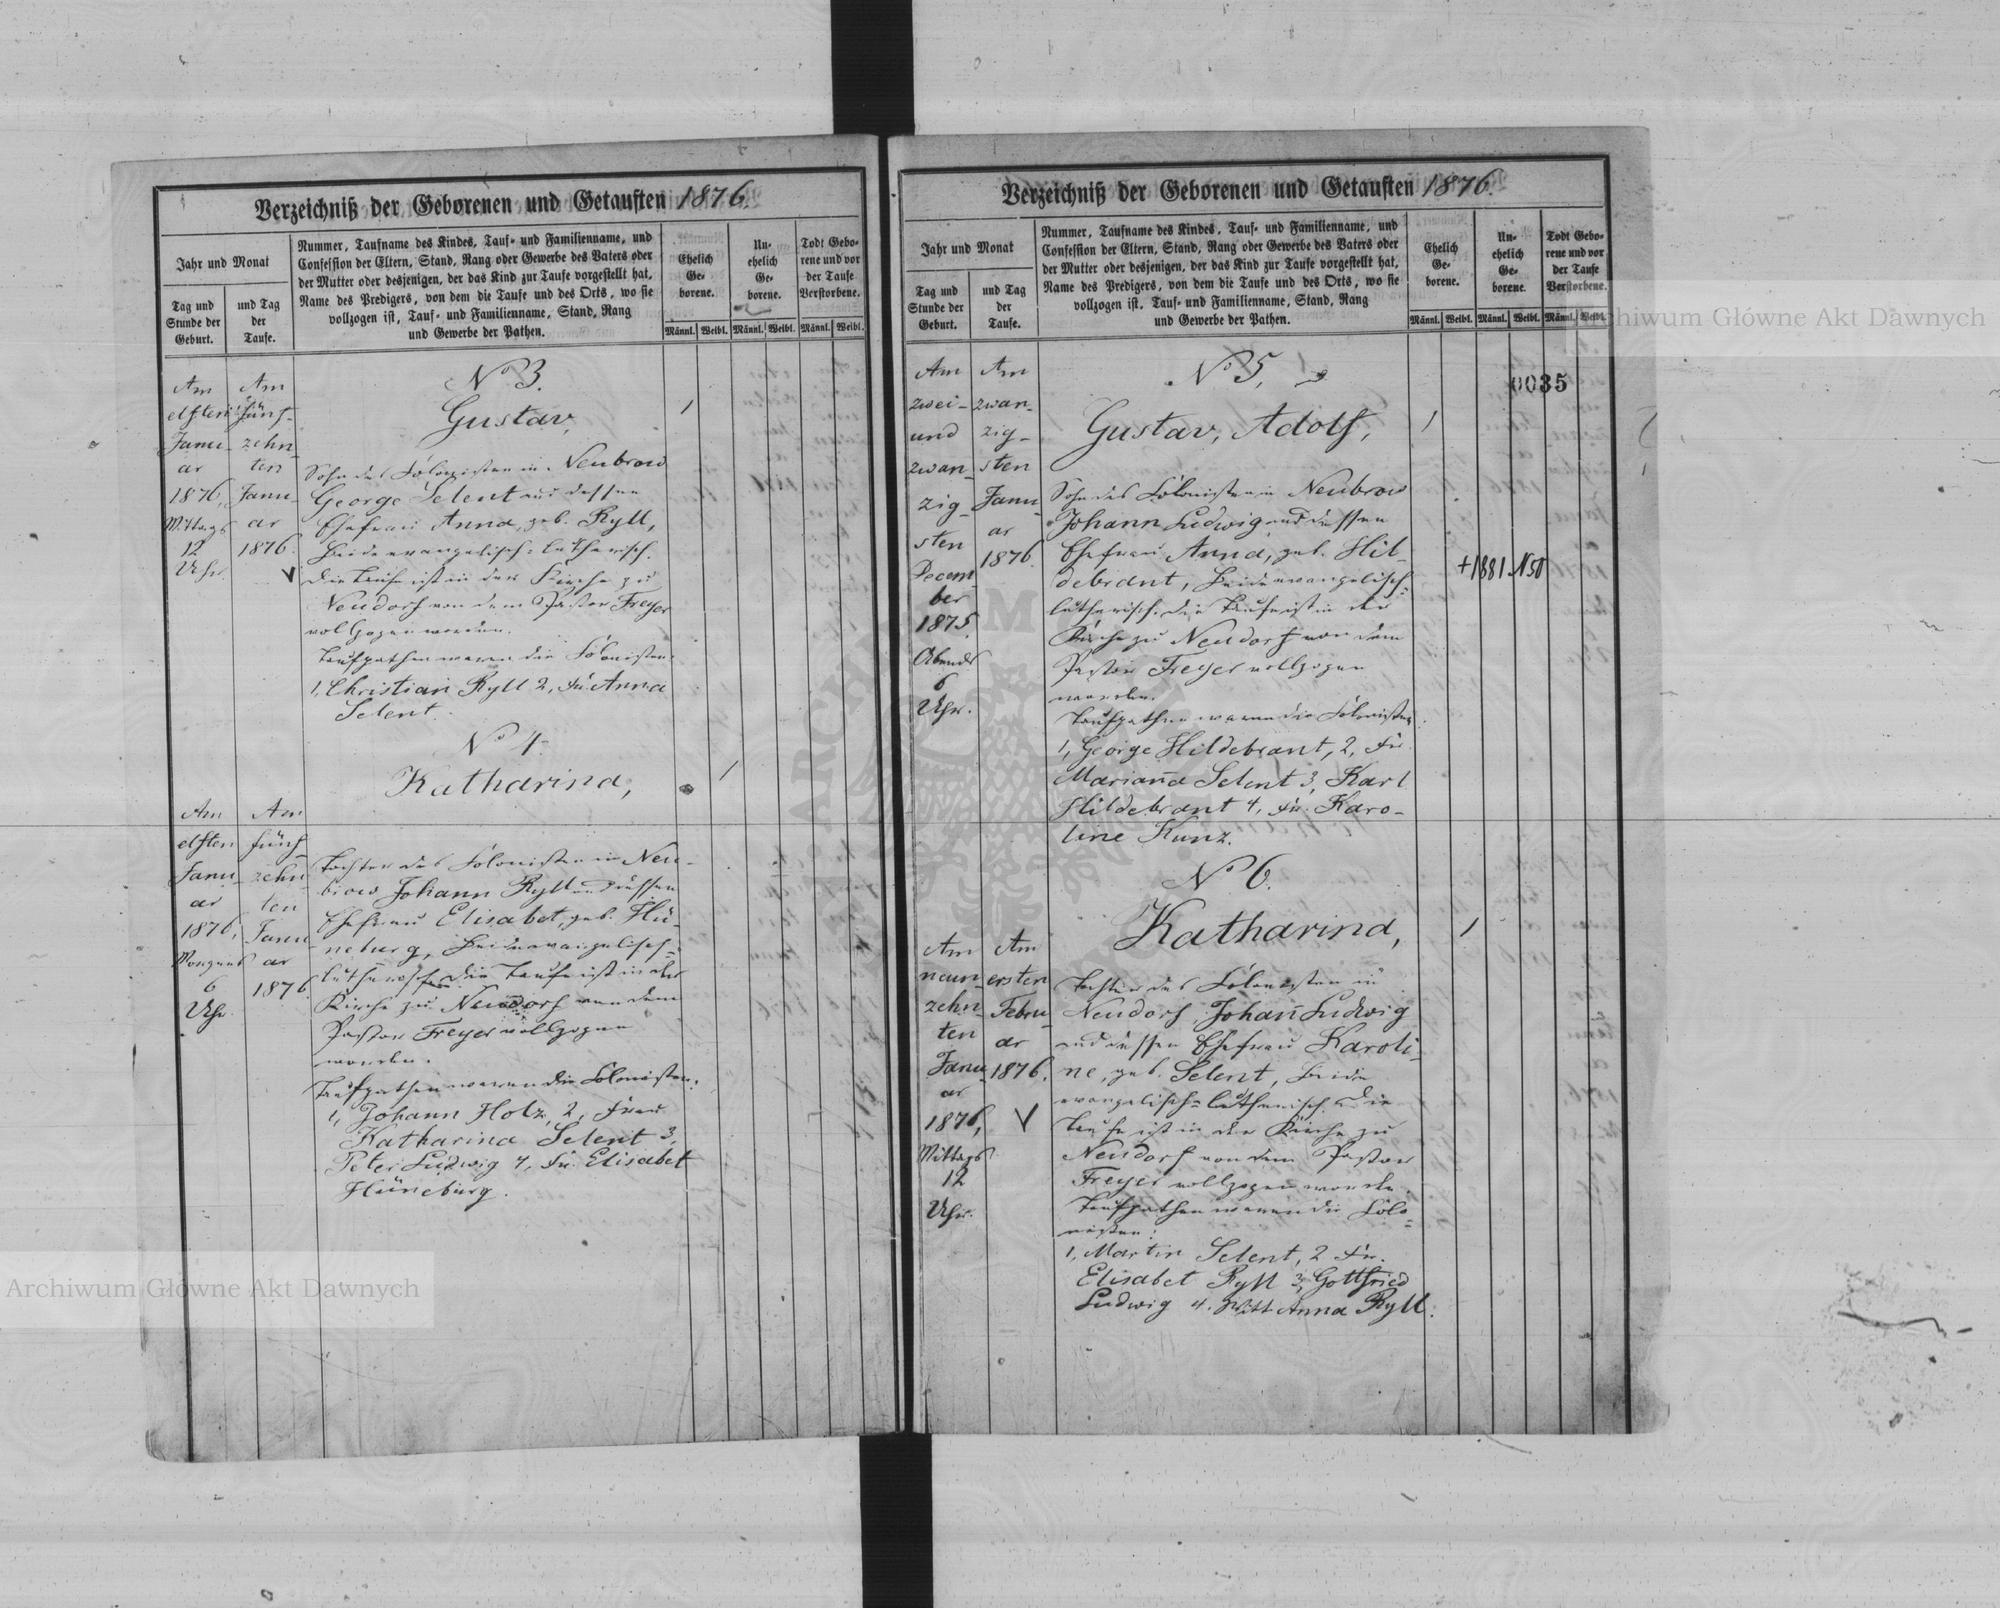 Verzeichniß der Geborenen und Getauften 1876.
Jahr und Monat
Tag und
Stunde der
Geburt.
und Tag
der
Taufe.
Nummer, Taufname des Kindes, Tauf- und Familienname, und
Confession der Eltern, Stand, Rang oder Gewerbe des Vaters oder
der Mutter oder desjenigen, der das Kind zur Taufe vorgestellt hat,
Name des Predigers, von dem die Taufe und des Orts, wo sie
vollzogen ist, Tauf- und Familienname, Stand, Rang
und Gewerbe der Pathen.
Ehelich
Ge-
borene.
Un-
ehelich
Ge-
borene.
Todt Gebo-
rene und vor
der Taufe
Verstorbene.
Männl. Weibl. Männl. Weibl. Männl. Weibl.
Am
elften
Janu-
ar
1876,
Mittags
12
Uhr
Am
fünf-
zehn-
ten
Janu-
ar
1876.
No 3.
Gustav,
Sohn des Kolonisten in Neubrow
George Selent und dessen
Ehefrau Anna, geb. Ryll,
Beide evangelisch-lutherisch.
Die Taufe ist in der Kirche zu
Neudorf von dem Pastor Freyer
vollzogen worden.
Taufpathen waren die Kolonisten:
1, Christian Ryll 2, Fr. Anna
Selent.
Am
elften
Janu-
ar
1876,
Morgens
6
Uhr.
Am
fünf
zehn-
ten
Janu-
ar
1876
No 4.
Katharina,
Tochter des Kolonisten in Neu-
brow Johann Ryll und dessen
Ehefrau Elisabet, geb. Hü-
neburg, Beide evangelisch-
lutherisch. Die Taufe ist in der
Kirche zu Neudorf von dem
Pastor Freyer vollzogen
worden.
Taufpathen waren die Kolonisten:
1, Johann Holz, 2, Frau
Katharina Selent 3,
Peter Ludwig 4, Fr. Elisabet
Hüneburg.
Verzeichniß der Geborenen und Getauften 1876.
Jahr und Monat
Tag und
Stunde der
Geburt.
und Tag
der
Taufe.
Nummer, Taufname des Kindes, Tauf- und Familienname, und
Confession der Eltern, Stand, Rang oder Gewerbe des Vaters oder
der Mutter oder desjenigen, der das Kind zur Taufe vorgestellt hat,
Name des Predigers, von dem die Taufe und des Orts, wo sie
vollzogen ist, Tauf- und Familienname, Stand, Rang
und Gewerbe der Pathen.
Ehelich
Ge-
borene.
Un-
ehelich
Ge-
borene.
Todt Gebo-
rene und vor
der Taufe
Verstorbene.
Männl. Weibl. Männl. Weibl. Männl. Weibl.
0035
Am
zwei-
und
zwan-
zig-
sten
Decem-
ber
1875.
Abends
6
Uhr.
Am
zwan-
zig-
sten
Janu-
ar
1876.
No 5,
Gustav, Adolf,
Sohn des Kolonisten in Neubrow
Johann Ludwig und dessen
Ehefrau Anna, geb. Hil-
debrant, Beide evangelisch-
lutherisch. Die Taufe ist in der
Kirche zu Neudorf von dem
Pastor Freyer vollzogen
worden.
Taufpathen waren die Kolonisten:
1, George Hildebrant, 2, Fr.
Marianna Selent 3, Karl
Hildebrant 4, Fr. Karo-
line Kunz.
+1881 N50
Am
neun-
zehn-
ten
Janu-
ar
1876,
Mittags
12
Uhr.
Am
ersten
Febru-
ar
1876.
No 6.
Katharina,
Tochter des Kolonisten in
Neudorf Johann Ludwig
und dessen Ehefrau Karoli-
ne, geb. Selent, Beide
evangelisch-lutherisch. Die
Taufe ist in der Kirche zu
Neudorf von dem Pastor
Freyer vollzogen worden.
Taufpathen waren die Kolo-
nisten:
1, Martin Selent, 2 Fr.
Elisabet Ryll 3, Gottfried
Ludwig 4. Witt Anna Ryll.
Archiwum Główne Akt Dawnych
Archiwum Główne Akt Dawnych